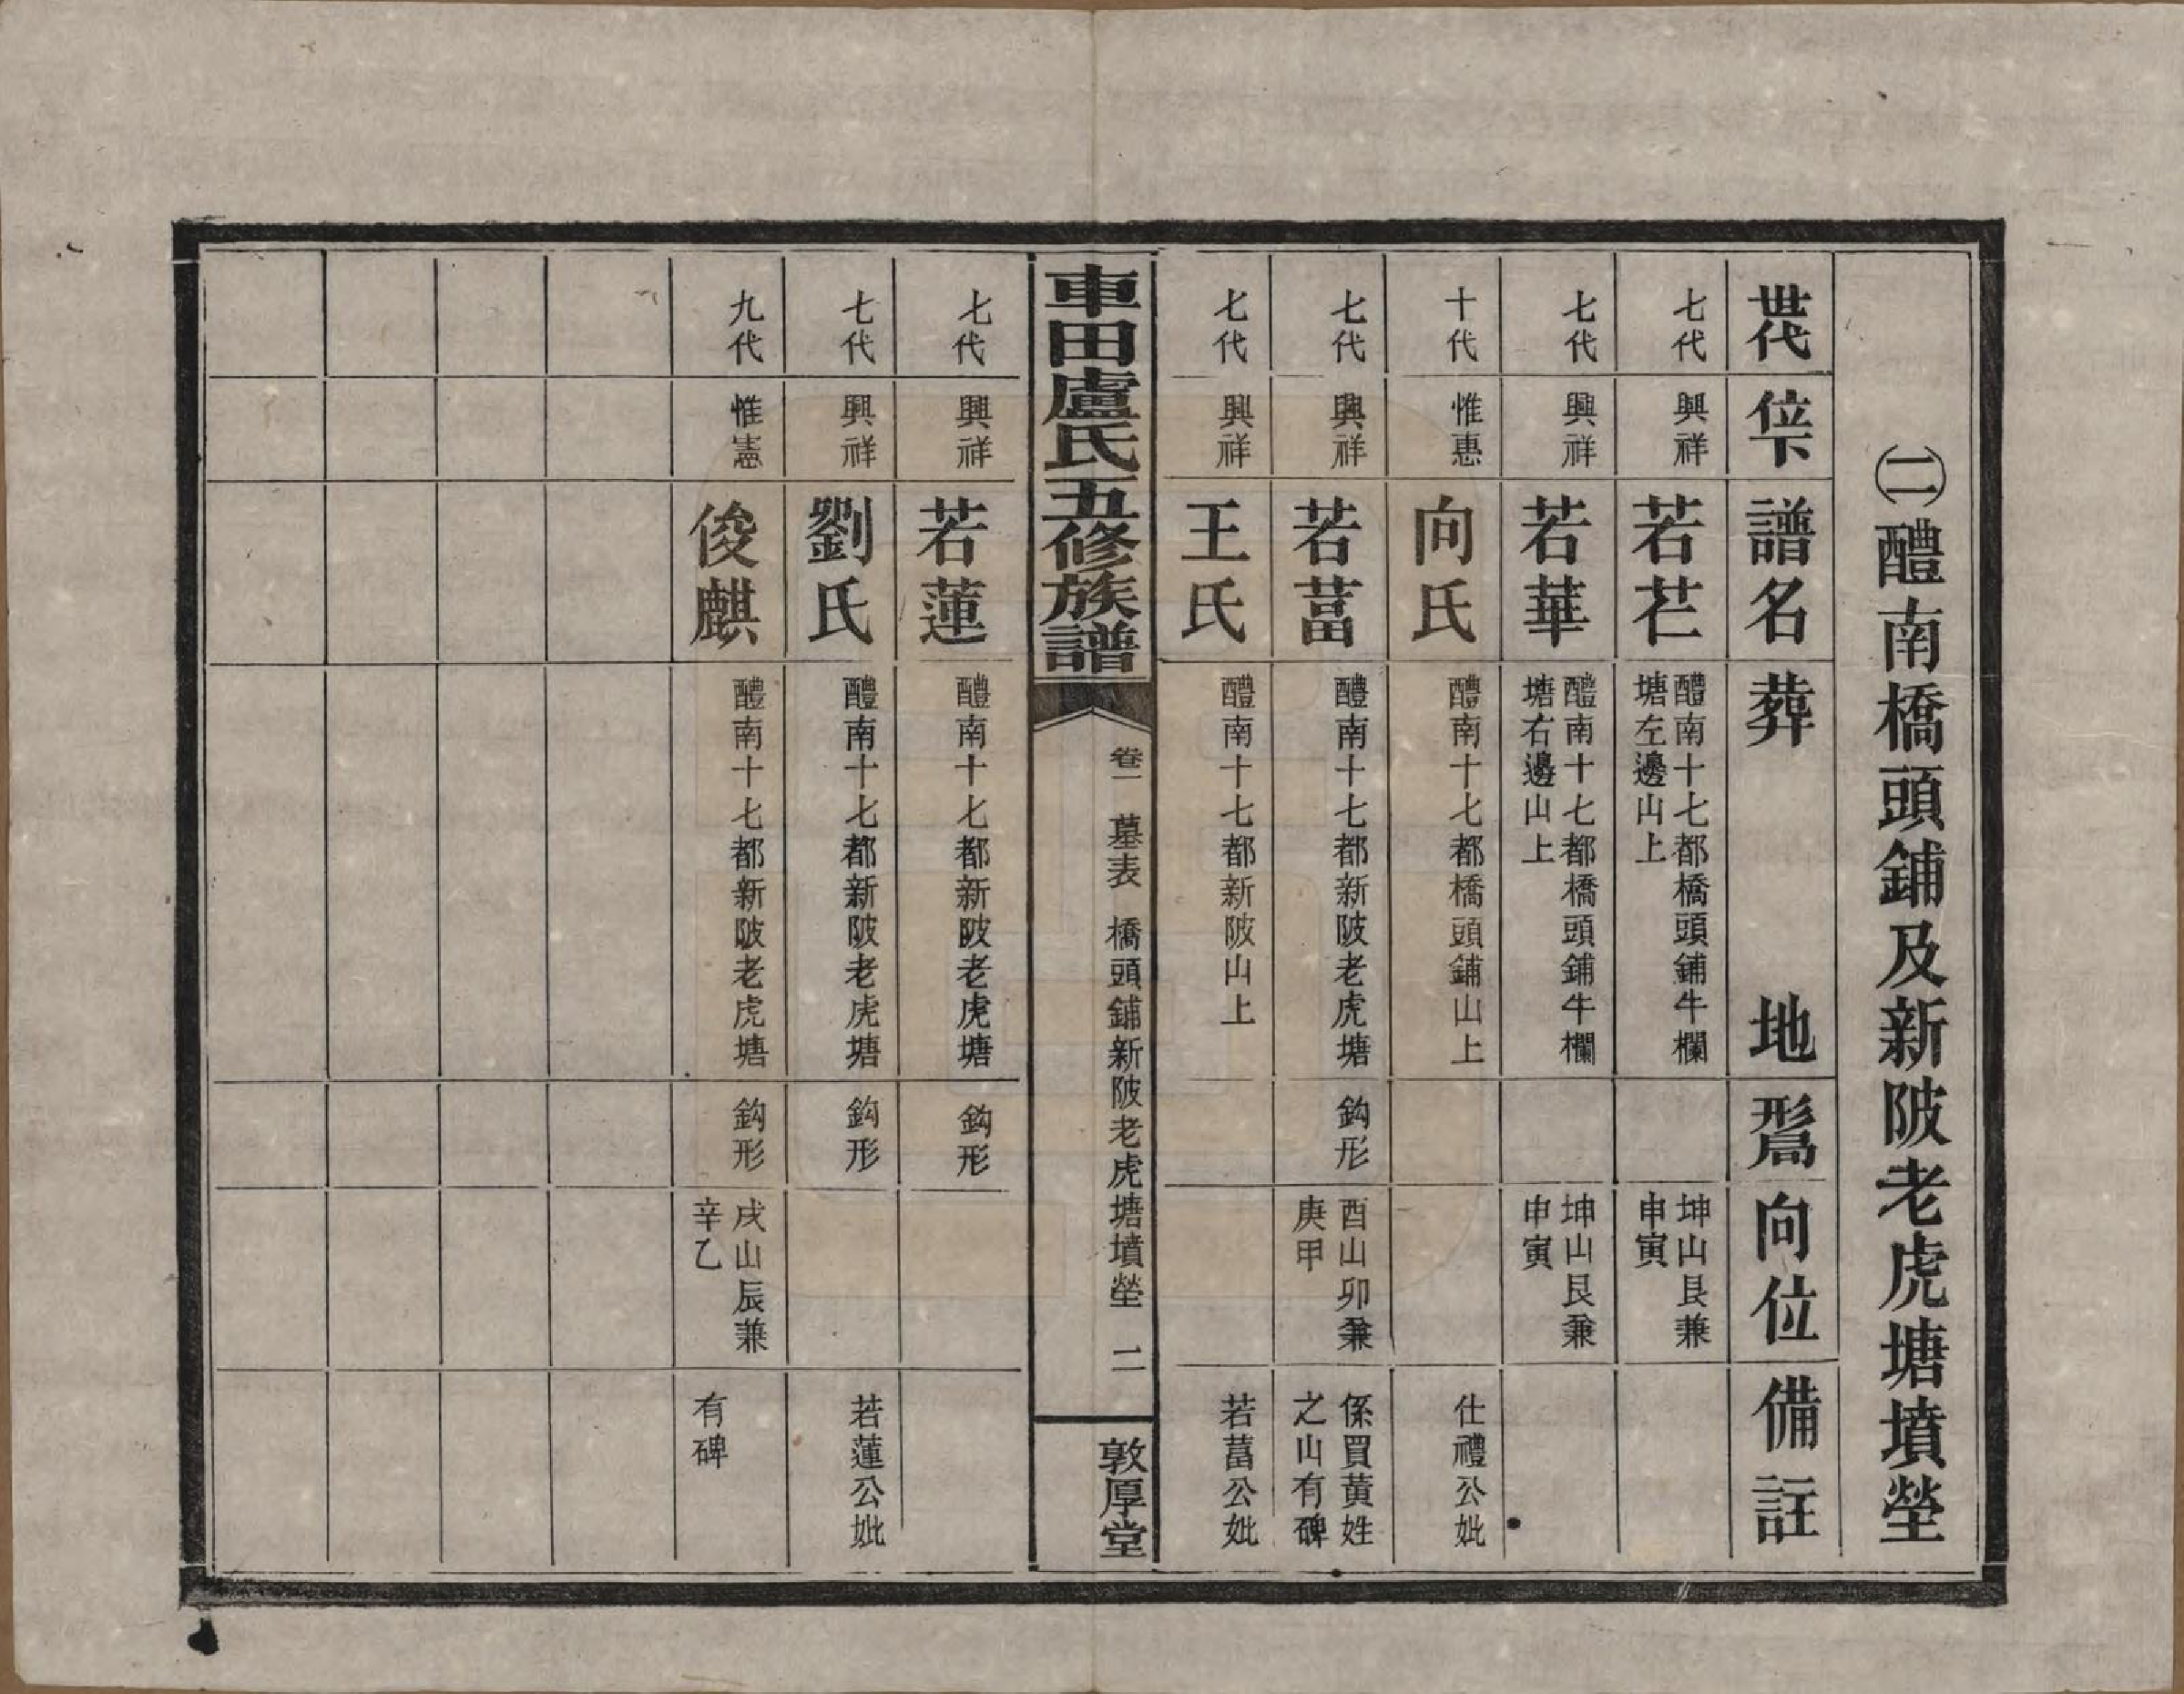 ㈡醴南橋頭鋪及新陂老虎塘墳塋
世代 倅下 譜名 葬地 形舃 向位 備註
七代 興祥 若芒 醴南十七都橋頭鋪牛欄塘左邊山上 坤山艮兼申寅
七代 興祥 若華 醴南十七都橋頭鋪牛欄塘右邊山上 坤山艮兼申寅
十代 惟惠 向氏 醴南十七都橋頭鋪山上 仕禮公妣
七代 興祥 若葍 醴南十七都新陂老虎塘 鈎形 酉山卯兼庚甲 係買黃姓之山有碑
七代 興祥 王氏 醴南十七都新陂山上 若葍公妣
車田盧氏五修族譜 卷一 墓表 橋頭鋪新陂老虎塘墳塋 二 敦厚堂
七代 興祥 若蓮 醴南十七都新陂老虎塘 鈎形
七代 興祥 劉氏 醴南十七都新陂老虎塘 鈎形 若蓮公妣
九代 惟憲 俊麒 醴南十七都新陂老虎塘 鈎形 戌山辰兼辛乙 有碑